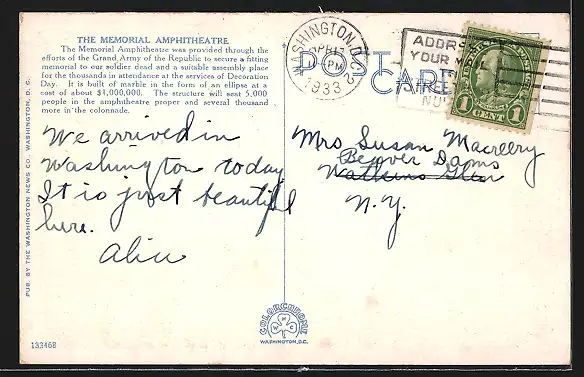 THE MEMORIAL AMPHITHEATRE
The Memorial Amphitheatre was provided through the
efforts of the Grand Army of the Republic to secure a fitting
memorial to our soldier dead and a suitable assembly place
for the thousands in attendance at the services of Decoration
Day. It is built of marble in the form of an ellipse at a
cost of about $1,000,000. The structure will seat 5,000
people in the amphitheatre proper and several thousand
more in the colonnade.
We arrived in
Washington today
It is just beautiful
here.
Alice
POST
CARD
WASHINGTON, D.C.
APR
PM
1933
ADDRESS
YOUR
STREET
1 CENT 1
Mrs Susan Macreery
Beaver Dams
Watkins Glen
N.Y.
PUB. BY THE WASHINGTON NEWS CO. WASHINGTON, D. C.
COLORCHROME
WASHINGTON, D.C.
133468